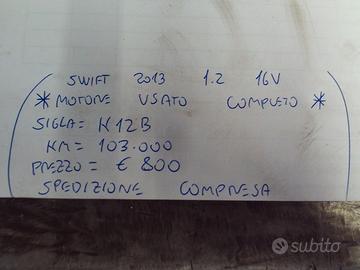 SWIFT 2013 1.2 16V
* MOTORE USATO COMPLETO *
SIGLA = K12B
KM = 103.000
PREZZO = € 800
SPEDIZIONE COMPRESA
subito